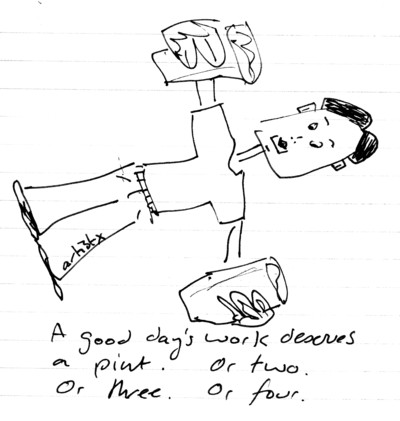 arthstx
A good day's work deserves
a pint. Or two.
Or three. Or four.